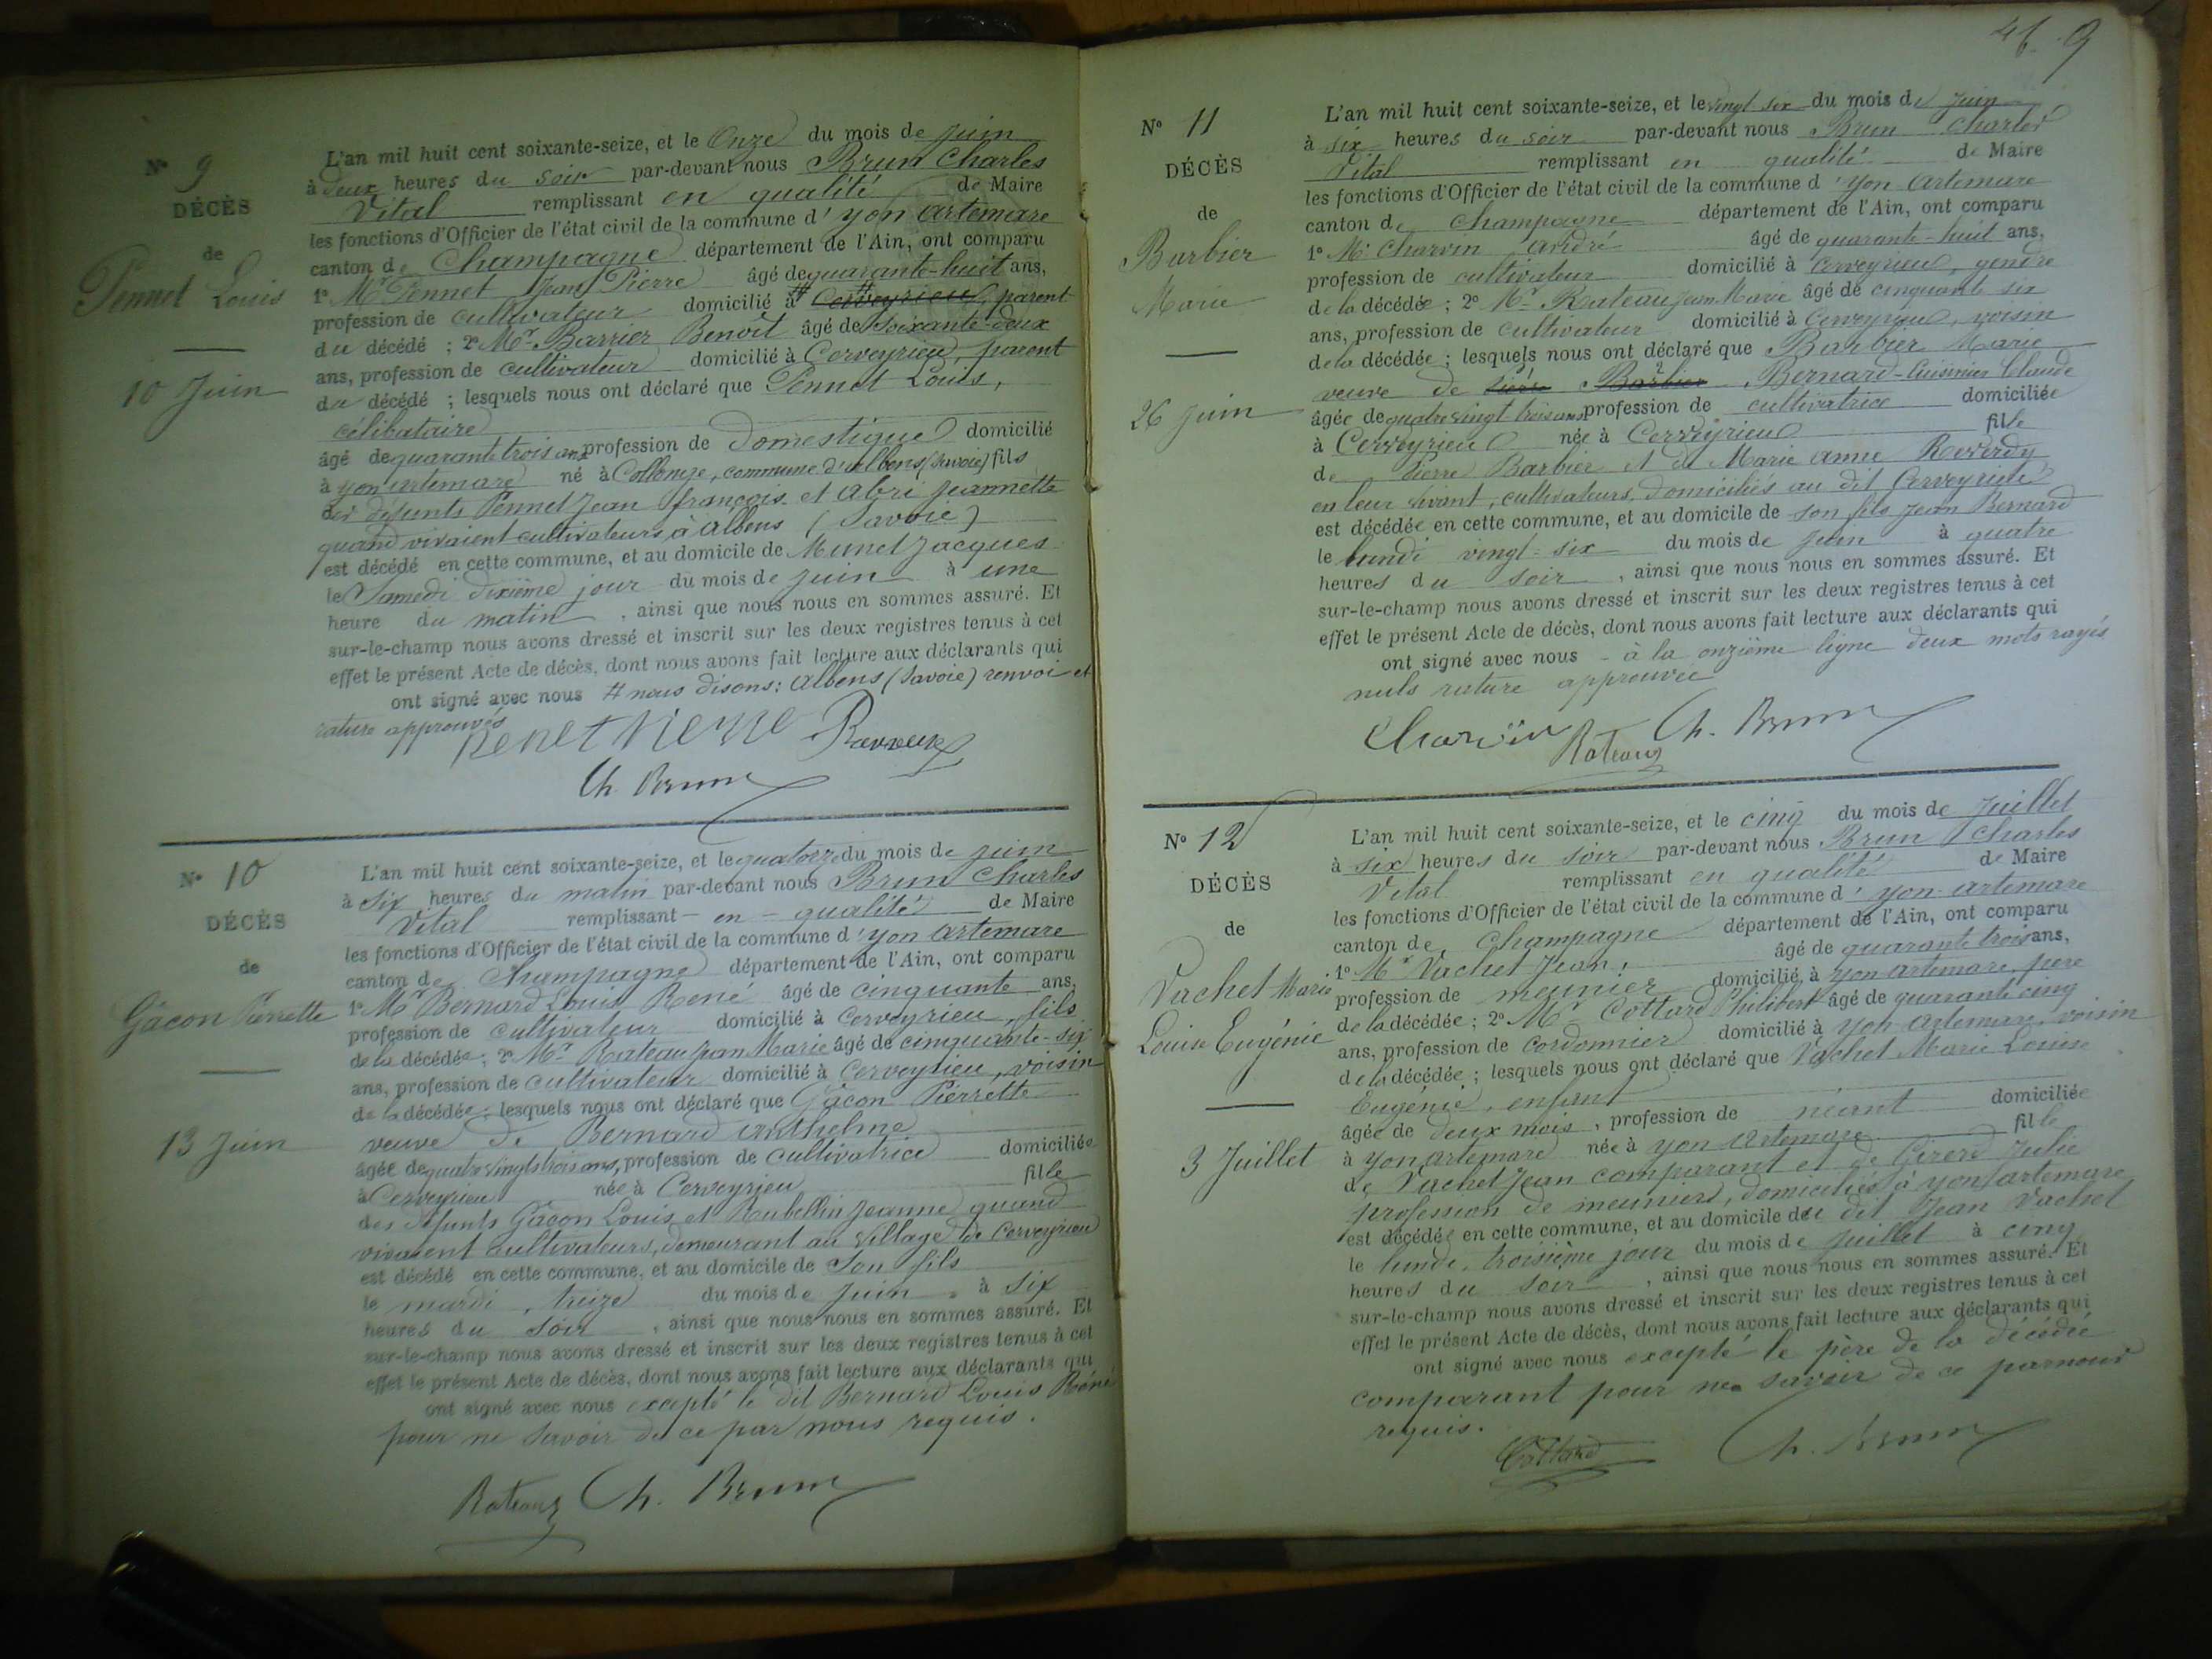 N° 9
DÉCÈS
de
Pennet Louis
10 Juin
L'an mil huit cent soixante-seize, et le Onze du mois de juin
à deux heures du soir par-devant nous Brun Charles
Vital remplissant en qualité de Maire
les fonctions d'Officier de l'état civil de la commune d'yon artemare
canton de Champagne département de l'Ain, ont comparu
1° Mr Pennet Jean Pierre âgé de quarante-huit ans,
profession de cultivateur domicilié à # Cerveyrieu #, parent
du décédé ; 2° Mr Barrier Benoît âgé de soixante-deux
ans, profession de cultivateur domicilié à Cerveyrieu, parent
du décédé ; lesquels nous ont déclaré que Pennet Louis,
célibataire
âgé de quarante trois ans profession de Domestique domicilié
à yon artemare né à Collonge, commune d'albens (Savoie) fils
des défunts Pennet Jean françois et Abri jeannette
quand vivaient cultivateurs à albens (Savoie)
est décédé en cette commune, et au domicile de Munet Jacques
le Samedi dixième jour du mois de juin à une
heure du matin , ainsi que nous nous en sommes assuré. Et
sur-le-champ nous avons dressé et inscrit sur les deux registres tenus à cet
effet le présent Acte de décès, dont nous avons fait lecture aux déclarants qui
ont signé avec nous # nous disons : albens (Savoie) renvoi et
rature approuvés
Ch. Brun
N° 10
DÉCÈS
de
Gâcon Pierrette
13 Juin
L'an mil huit cent soixante-seize, et le quatorze du mois de juin
à six heures du matin par-devant nous Brun Charles
Vital remplissant - en - qualité de Maire
les fonctions d'Officier de l'état civil de la commune d'yon artemare
canton de Champagne département de l'Ain, ont comparu
1° Mr Bernard Louis René âgé de cinquante ans,
profession de cultivateur domicilié à Cerveyrieu, fils
de la décédée ; 2° Mr Rateau jean Marie âgé de cinquante-six
ans, profession de cultivateur domicilié à Cerveyrieu, voisin
de la décédée ; lesquels nous ont déclaré que Gâcon Pierrette
veuve de Bernard anthelme
âgée de quatre vingts trois ans, profession de cultivatrice domiciliée
à Cerveyrieu née à Cerveyrieu fille
des défunts Gâcon Louis et Rubellin jeanne quand
vivaient cultivateurs, demeurant au village de Cerveyrieu
est décédé en cette commune, et au domicile de Son fils
le mardi, treize du mois de juin à six
heures du soir , ainsi que nous nous en sommes assuré. Et
sur-le-champ nous avons dressé et inscrit sur les deux registres tenus à cet
effet le présent Acte de décès, dont nous avons fait lecture aux déclarants qui
ont signé avec nous excepté le dit Bernard Louis Réné
pour ne savoir de ce par nous requis.
Rateau Ch. Brun
9
N° 11
DÉCÈS
de
Barbier
Marie
26 juin
L'an mil huit cent soixante-seize, et le vingt six du mois de juin
à six heures du soir par-devant nous Brun Charles
Vital remplissant en qualité de Maire
les fonctions d'Officier de l'état civil de la commune d'yon artemare
canton de Champagne département de l'Ain, ont comparu
1° Mr Charvin andré âgé de quarante-huit ans,
profession de cultivateur domicilié à Cerveyrieu, gendre
de la décédée ; 2° Mr Rateau jean Marie âgé de cinquante six
ans, profession de cultivateur domicilié à Cerveyrieu, voisin
de la décédée ; lesquels nous ont déclaré que Barbier Marie
veuve de Pierre Barbier Bernard-Cuisinier Claude
âgée de quatre vingt trois ans profession de cultivatrice domiciliée
à Cerveyrieu née à Cerveyrieu fille
de Pierre Barbier et de Marie anne Reverdy
en leur vivant, cultivateurs, domiciliés au dit Cerveyrieu
est décédée en cette commune, et au domicile de son fils Jean Bernard
le lundi vingt-six du mois de juin à quatre
heures du soir , ainsi que nous nous en sommes assuré. Et
sur-le-champ nous avons dressé et inscrit sur les deux registres tenus à cet
effet le présent Acte de décès, dont nous avons fait lecture aux déclarants qui
ont signé avec nous - à la onzième ligne deux mots rayés
nuls rature approuvée
Charvin Rateau Ch. Brun
N° 12
DÉCÈS
de
Vachet Marie
Louise Eugénie
3 Juillet
L'an mil huit cent soixante-seize, et le cinq du mois de Juillet
à six heures du soir par-devant nous Brun Charles
Vital remplissant en qualité de Maire
les fonctions d'Officier de l'état civil de la commune d'yon-artemare
canton de Champagne département de l'Ain, ont comparu
1° Mr Vachet Jean, âgé de quarante trois ans,
profession de meunier domicilié à yon artemare, père
de la décédée ; 2° Mr Cottard Philibert âgé de quarante cinq
ans, profession de cordonnier domicilié à yon artemare, voisin
de la décédée ; lesquels nous ont déclaré que Vachet Marie Louise
Eugénie, enfant
âgée de deux mois , profession de néant domiciliée
à yon artemare née à yon artemare fille
de Vachet Jean comparant et de Girerd Julie
profession de meuniers, domiciliés à yon artemare
est décédée en cette commune, et au domicile du dit Jean Vachet
le lundi, troisième jour du mois de juillet à cinq
heures du soir , ainsi que nous nous en sommes assuré. Et
sur-le-champ nous avons dressé et inscrit sur les deux registres tenus à cet
effet le présent Acte de décès, dont nous avons fait lecture aux déclarants qui
ont signé avec nous excepté le père de la décédée
comparant pour ne savoir de ce par nous
requis.
Cottard Ch. Brun